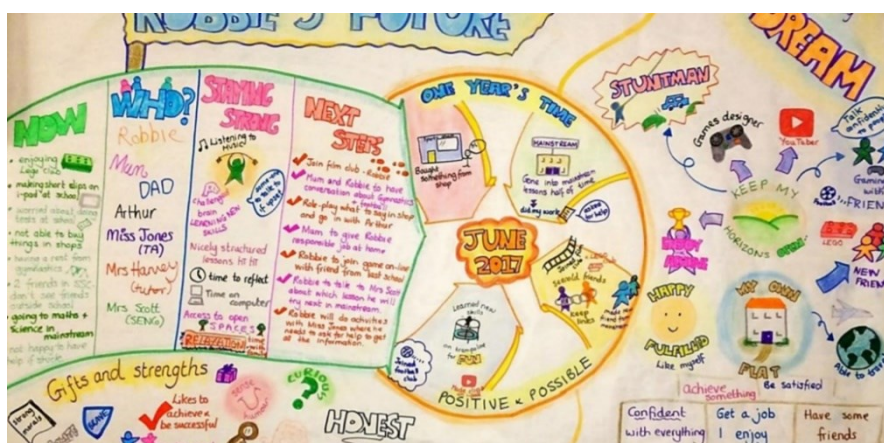 ROBBIE'S FUTURE
DREAM
NOW
enjoying
Lego club
making short clips on
i-pad at school
worried about doing
tests at school
not able to buy
things in shops
having a rest from
gymnastics
2 friends in SSC
don't see friends
outside school
going to maths +
science in
mainstream
not happy to have
help if stuck
WHO?
Robbie
Mum
DAD
Arthur
Miss Jones
(TA)
Mrs Harvey
(tutor)
Mrs Scott
(SENCo)
STAYING
STRONG
Listening to
Music!
Challenge
brain
LEARNING NEW
SKILLS
Nicely structured
lessons
time to reflect
Time on
computer
Access to open
SPACES
RELAXATION
NEXT
STEPS
Join film club - Robbie
Mum and Robbie to have
conversation about Gymnastics
+ football
Role-play what to say in shop
and go in with Arthur
Mum to give Robbie
responsible job at home
Robbie to join game on-line
with friend from last school
Robbie to talk to Mrs Scott
about which lesson he will
try next in mainstream
Robbie will do activities
with Miss Jones where he
needs to ask for help to get
all the information.
ONE YEAR'S TIME
Bought something from
shop
MAINSTREAM
Gone into mainstream
lessons half of time
did my work
asked
for help
JUNE
2017
Learned new
skills
on trampoline
for FUN
Joined
football
club
keep
links
made new
friend from
mainstream
POSITIVE & POSSIBLE
STUNTMAN
Games designer
YouTuber
Talk
confidently
to
Gaming
with
FRIENDS
KEEP MY
HORIZONS OPEN
LEGO
NEW
FRIENDS
HAPPY
FULFILLED
Like myself
MY OWN
FLAT
Able to travel
achieve
something
Be satisfied
Confident
with everything
Get a job
I enjoy
Have some
friends
Gifts and strengths
strong
morals
Likes to
achieve &
be successful
CURIOUS
HONEST